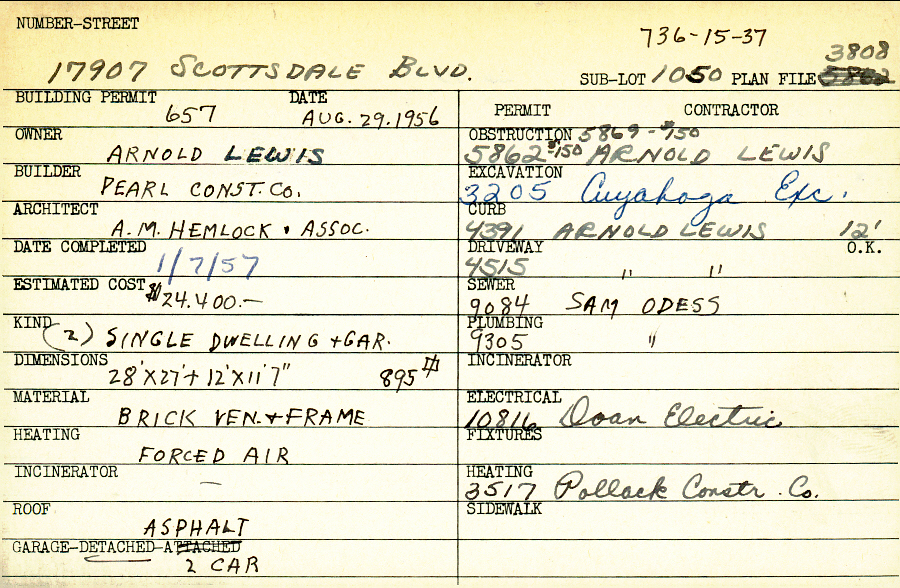 NUMBER-STREET
736-15-37
17907 SCOTTSDALE BLVD.
3808
SUB-LOT 1050 PLAN FILE 5862
BUILDING PERMIT DATE
657 AUG. 29.1956
OWNER
ARNOLD LEWIS
BUILDER
PEARL CONST. CO.
ARCHITECT
A.M. HEMLOCK & ASSOC.
DATE COMPLETED
1/7/57
ESTIMATED COST
$24.400.—
KIND
(2) SINGLE DWELLING + GAR.
DIMENSIONS
28'X27'+ 12'X11'7" 895 #
MATERIAL
BRICK VEN. + FRAME
HEATING
FORCED AIR
INCINERATOR
—
ROOF
ASPHALT
GARAGE-DETACHED-ATTACHED
2 CAR
PERMIT CONTRACTOR
OBSTRUCTION 5869-$150
5862 $150 ARNOLD LEWIS
EXCAVATION
3205 Cuyahoga Exc.
CURB
4391 ARNOLD LEWIS 12'
DRIVEWAY O.K.
4515 " "
SEWER
9084 SAM ODESS
PLUMBING
9305 "
INCINERATOR
ELECTRICAL
10816 Doan Electric
FIXTURES
HEATING
3517 Pollack Constr. Co.
SIDEWALK